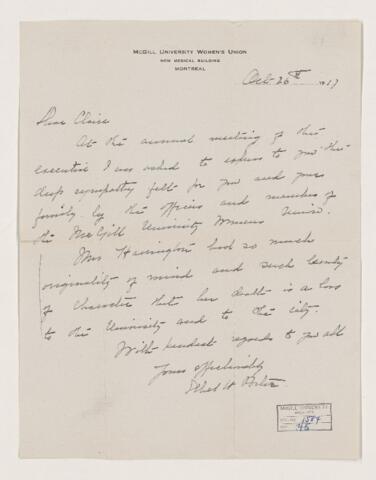 McGILL UNIVERSITY WOMEN'S UNION
NEW MEDICAL BUILDING
MONTREAL
Oct. 26th 1917
Dear Claire
At the annual meeting of the
executive I was asked to express to you the
deep sympathy felt for you and your
family by the officers and members of
the McGill University Womens Union.
Mrs Harrington had so much
originality of mind and such beauty
of character that her death is a loss
to the University and to the city.
With kindest regards to you all
Yours affectionately
Ethel W
McGILL UNIVERSITY
ARCHIVES
1504